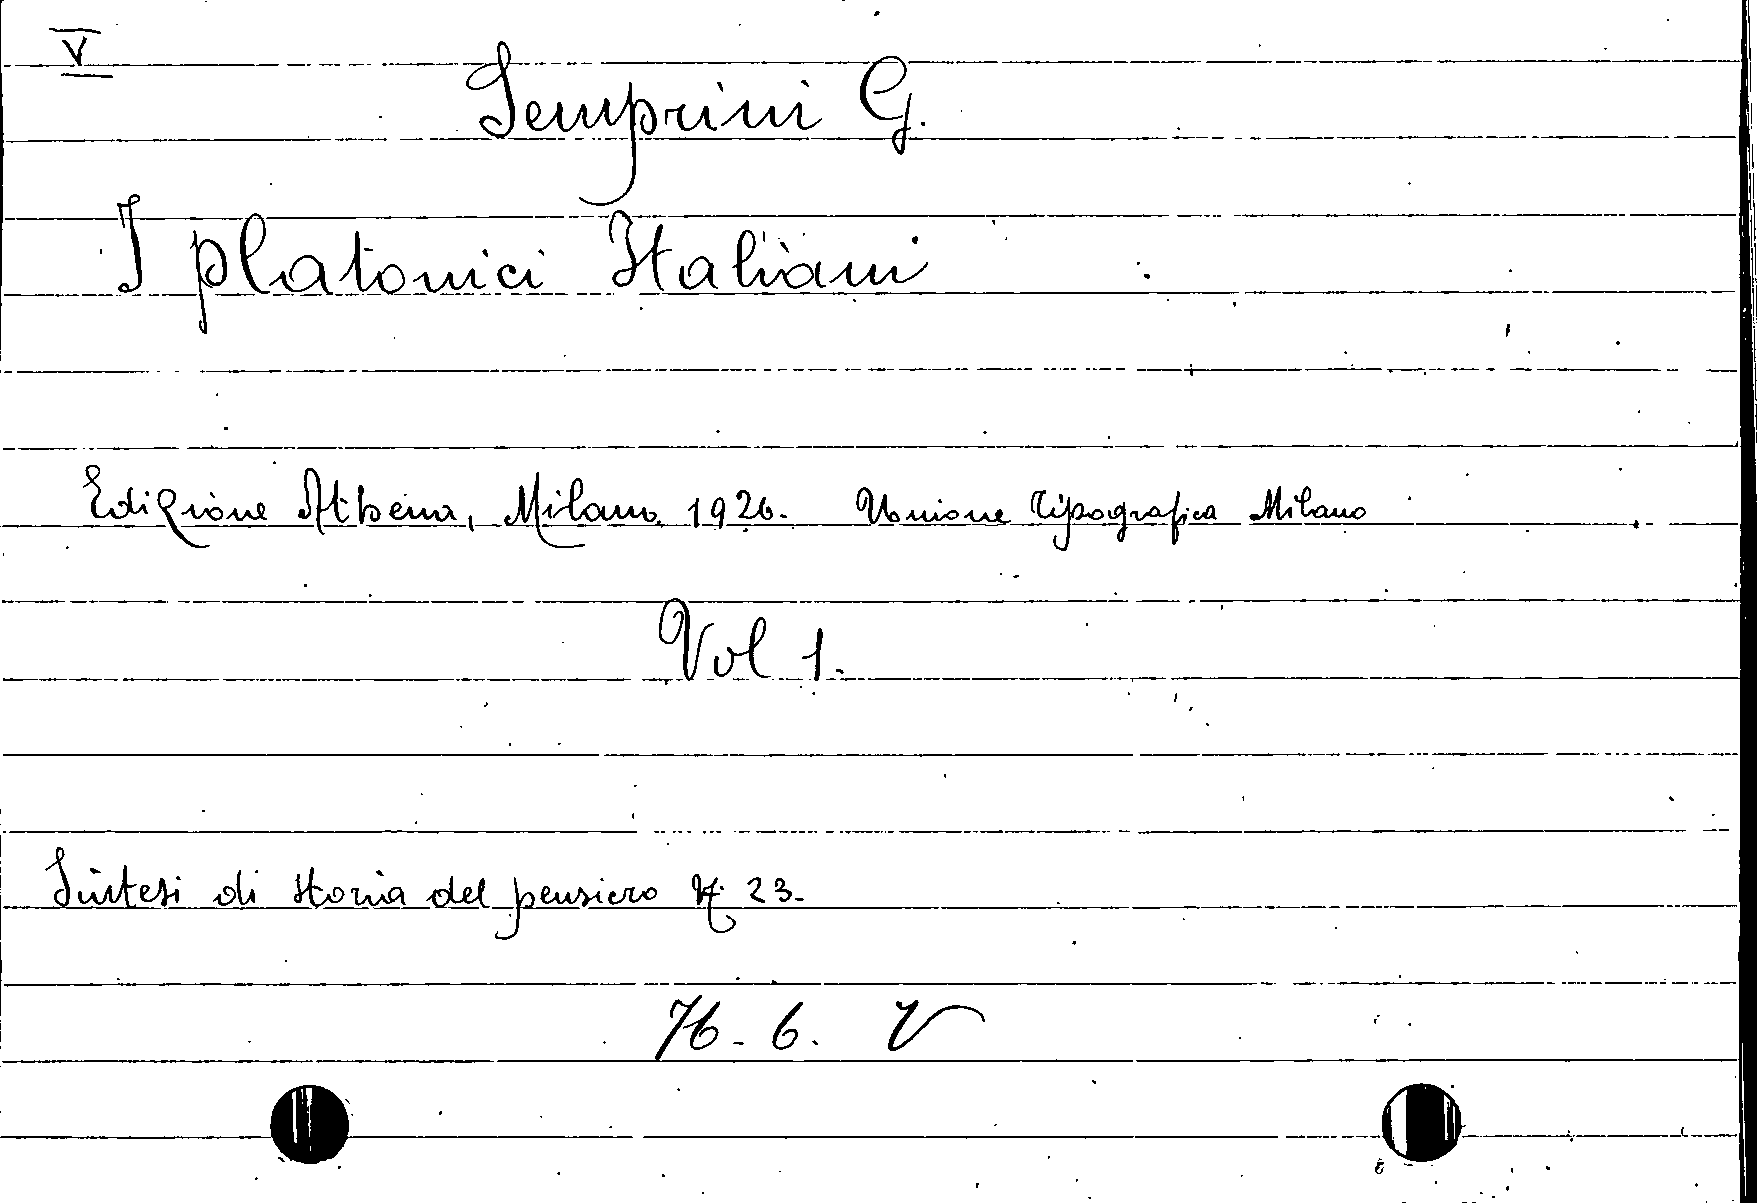 V
Semprini G.
I platonici Italiani
Edizione Athena, Milano 1926. Unione Tipografica Milano
Vol 1.
Sintesi di storia del pensiero N. 23.
76. 6. V